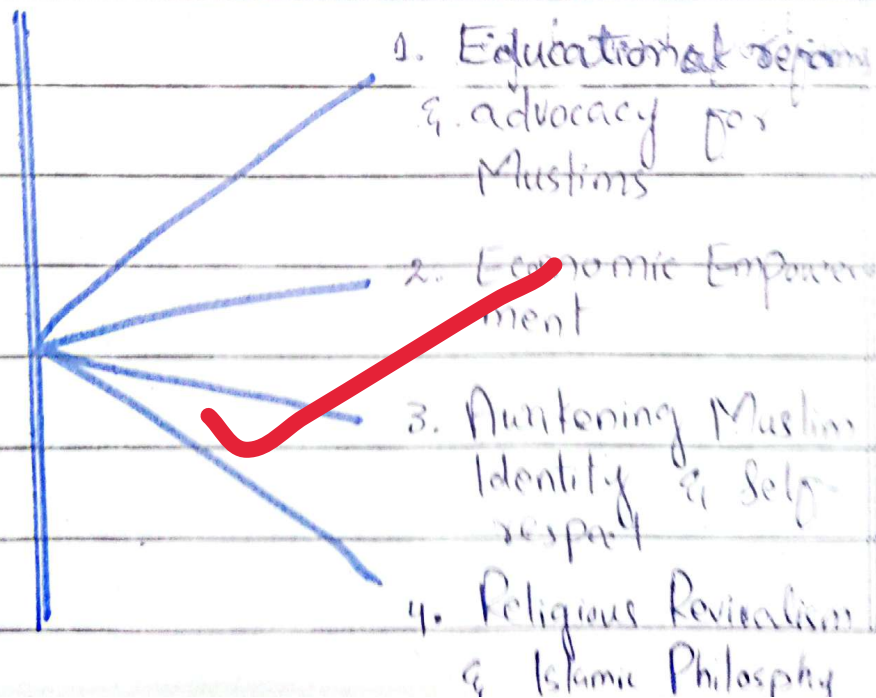 1. Educational reform
& advocacy for
Muslims
2. Economic Empower
ment
3. Awakening Muslim
Identity & Self-
respect
4. Religious Revivalism
& Islamic Philosphy